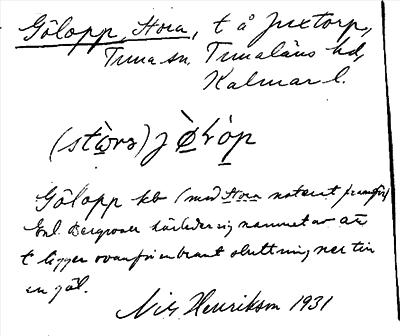 Gölopp, Stora, t å Juxtorp,
Tuna sn, Tunaläns hd,
Kalmar l.
(stɷ̀rə) jø̀lóp
Gölopp kb (med Stora noterat framför)
Enl. Bergroser härleder sig namnet av att
t ligger ovanför en brant sluttning ner till
en göl.
Nils Henrikson 1931